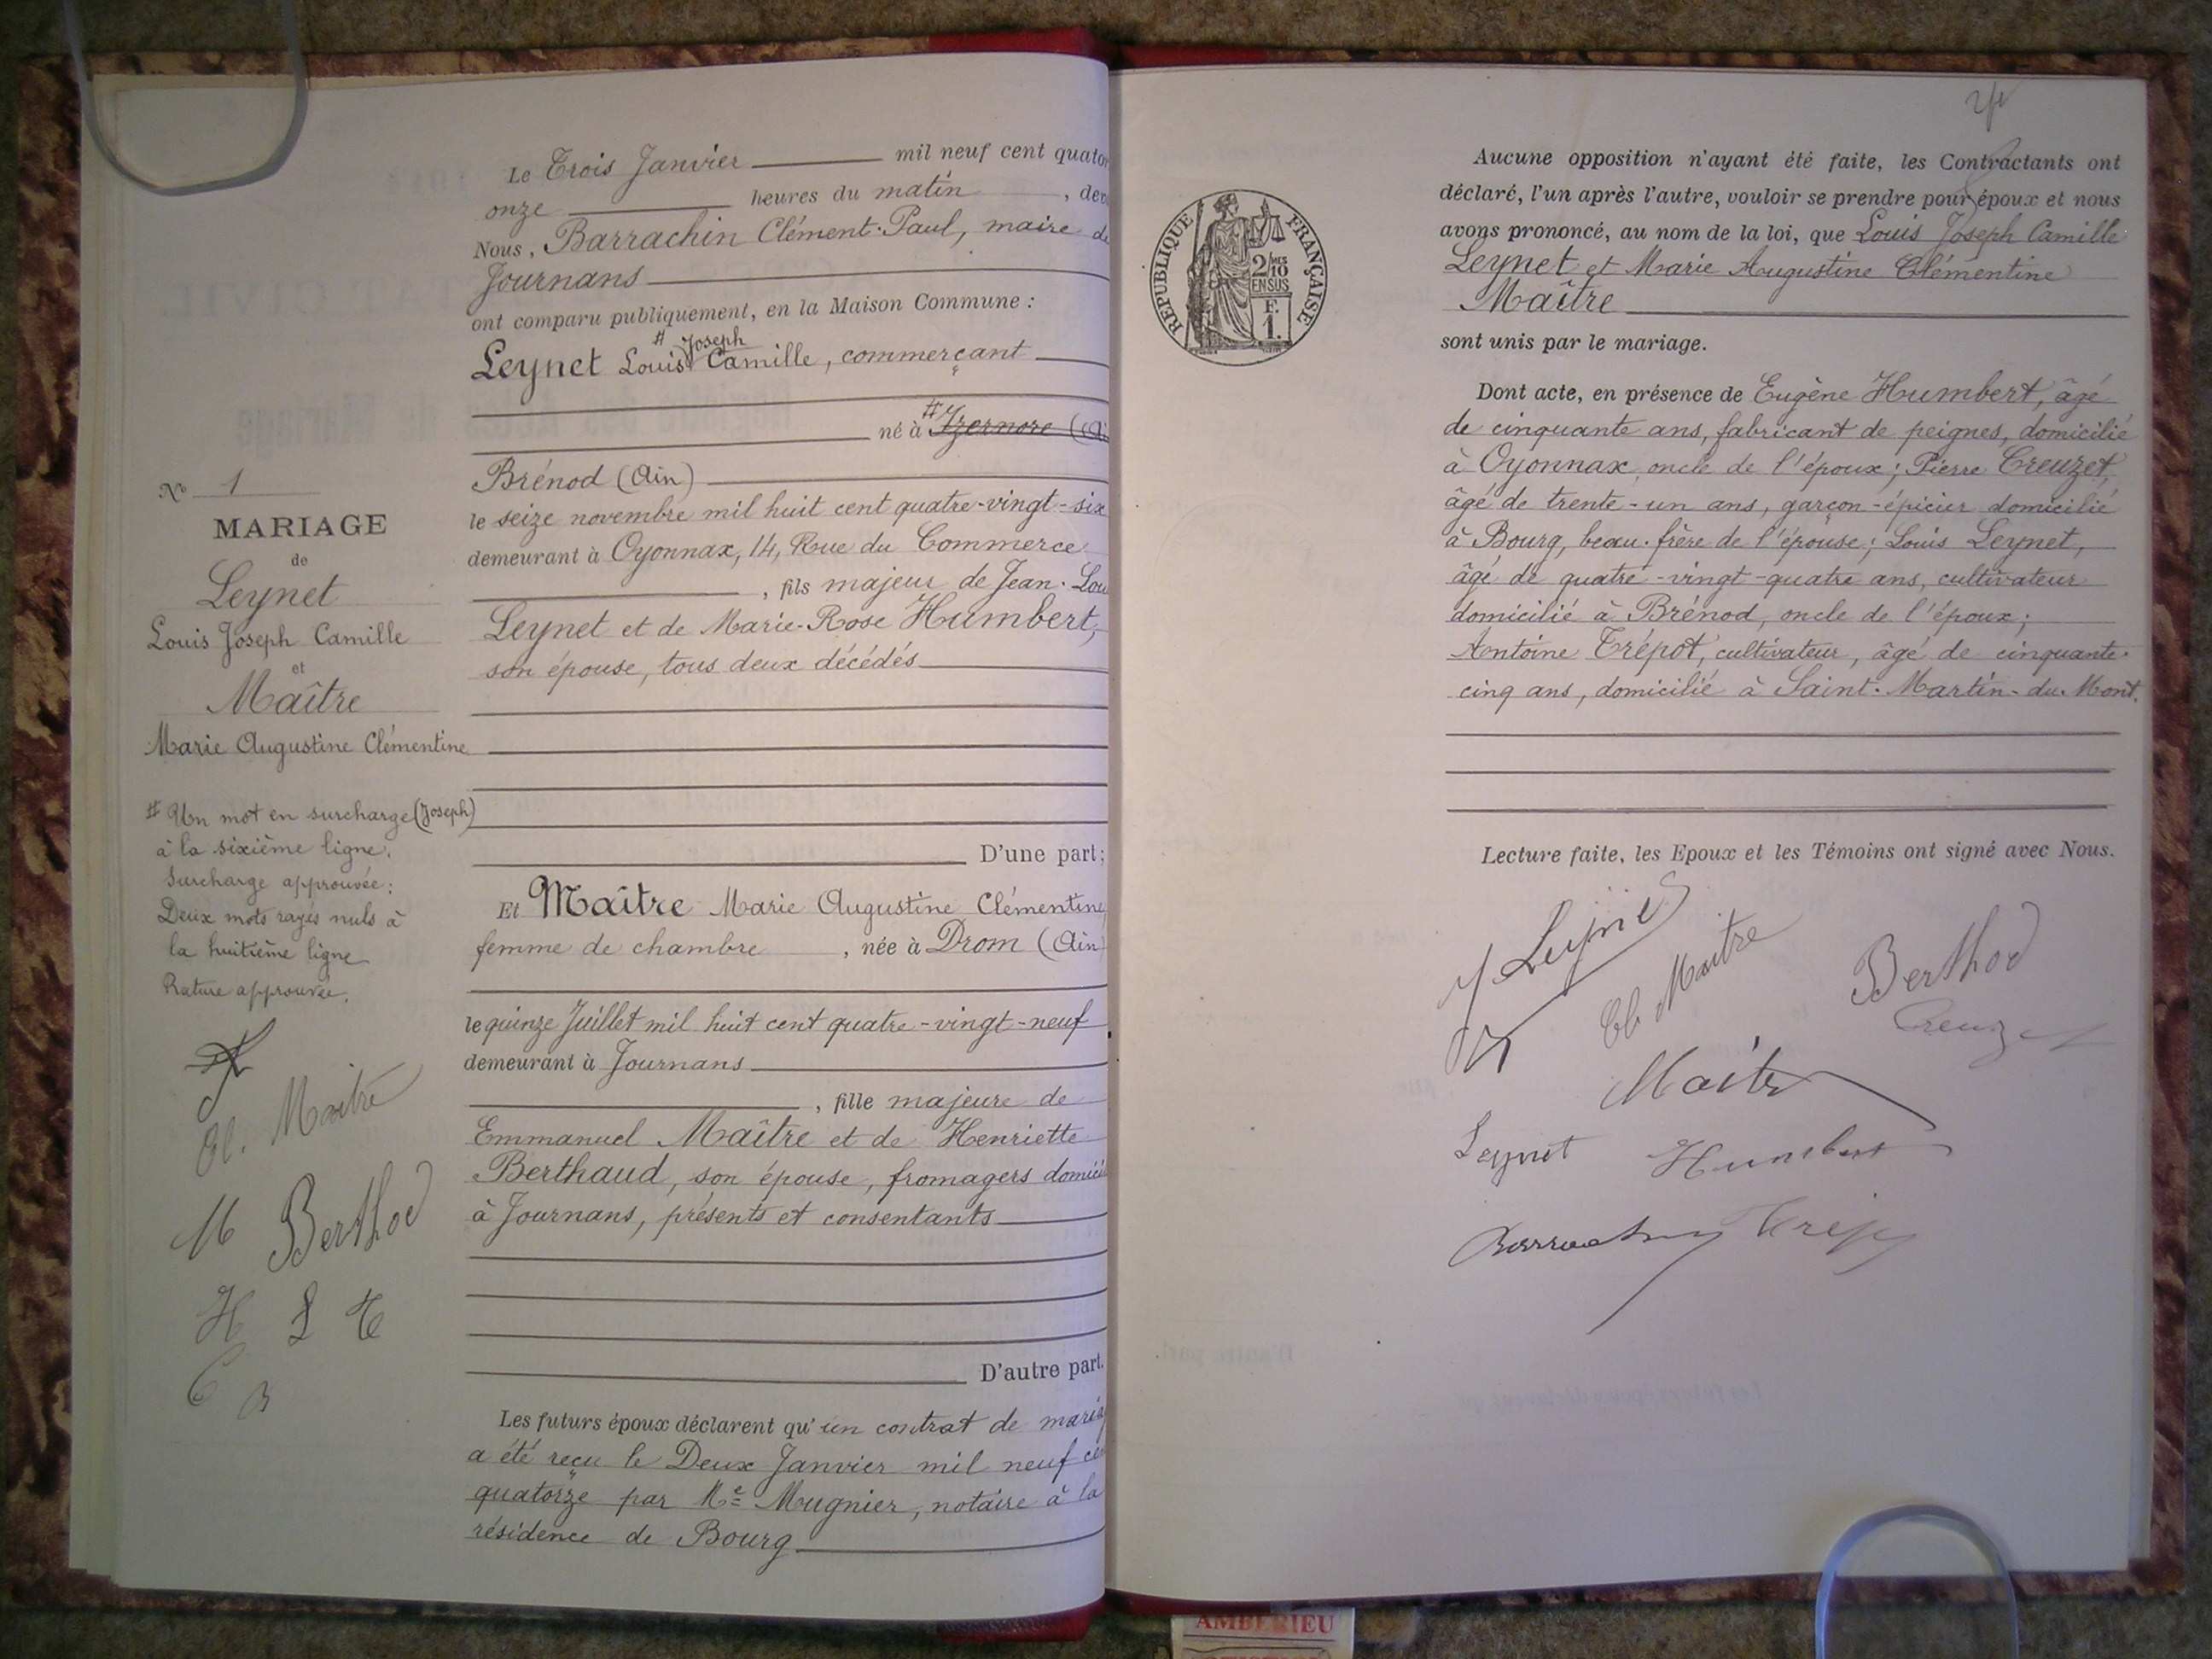 N° 1
MARIAGE
de
Leynet
Louis Joseph Camille
et
Maître
Marie Augustine Clémentine
# Un mot en surcharge (Joseph)
à la sixième ligne.
Surcharge approuvée:
Deux mots rayés nuls à
la huitième ligne
Rature approuvée.
Cl. Maitre
M Berthod
H L T
C B
Le Trois Janvier mil neuf cent quator
onze heures du matin, deva
Nous, Barrachin Clément-Paul, maire de
Journans
ont comparu publiquement, en la Maison Commune :
# Joseph
Leynet Louis Camille, commerçant
né à # Izernore (Ai
Brénod (Ain)
le seize novembre mil huit cent quatre-vingt-six
demeurant à Oyonnax, 14, Rue du Commerce
, fils majeur de Jean-Lou
Leynet et de Marie-Rose Humbert,
son épouse, tous deux décédés
D'une part;
Et Maître Marie Augustine Clémentine,
femme de chambre, née à Drom (Ain)
le quinze Juillet mil huit cent quatre-vingt-neuf
demeurant à Journans
, fille majeure de
Emmanuel Maître et de Henriette
Berthaud, son épouse, fromagers domici
à Journans, présents et consentants
D'autre part.
Les futurs époux déclarent qu'un contrat de maria
a été reçu le Deux Janvier mil neuf cen
quatorze par Me Mugnier, notaire à la
résidence de Bourg
RÉPUBLIQUE FRANÇAISE
2/10 MES
EN SUS
F.
1.
Aucune opposition n'ayant été faite, les Contractants ont
déclaré, l'un après l'autre, vouloir se prendre pour époux et nous
avons prononcé, au nom de la loi, que Louis Joseph Camille
Leynet et Marie Augustine Clémentine
Maître
sont unis par le mariage.
Dont acte, en présence de Eugène Humbert, âgé
de cinquante ans, fabricant de peignes, domicilié
à Oyonnax, oncle de l'époux; Pierre Creuzet,
âgé de trente-un ans, garçon-épicier domicilié
à Bourg, beau-frère de l'épouse; Louis Leynet,
âgé de quatre-vingt-quatre ans, cultivateur
domicilié à Brénod, oncle de l'époux;
Antoine Trépot, cultivateur, âgé de cinquante-
cinq ans, domicilié à Saint-Martin-du-Mont.
Lecture faite, les Epoux et les Témoins ont signé avec Nous.
Leynet
Cl. Maitre
Berthod
Creuzet
Maitre
Leynet Humbert
Barrachin Trépot
AMBERIEU